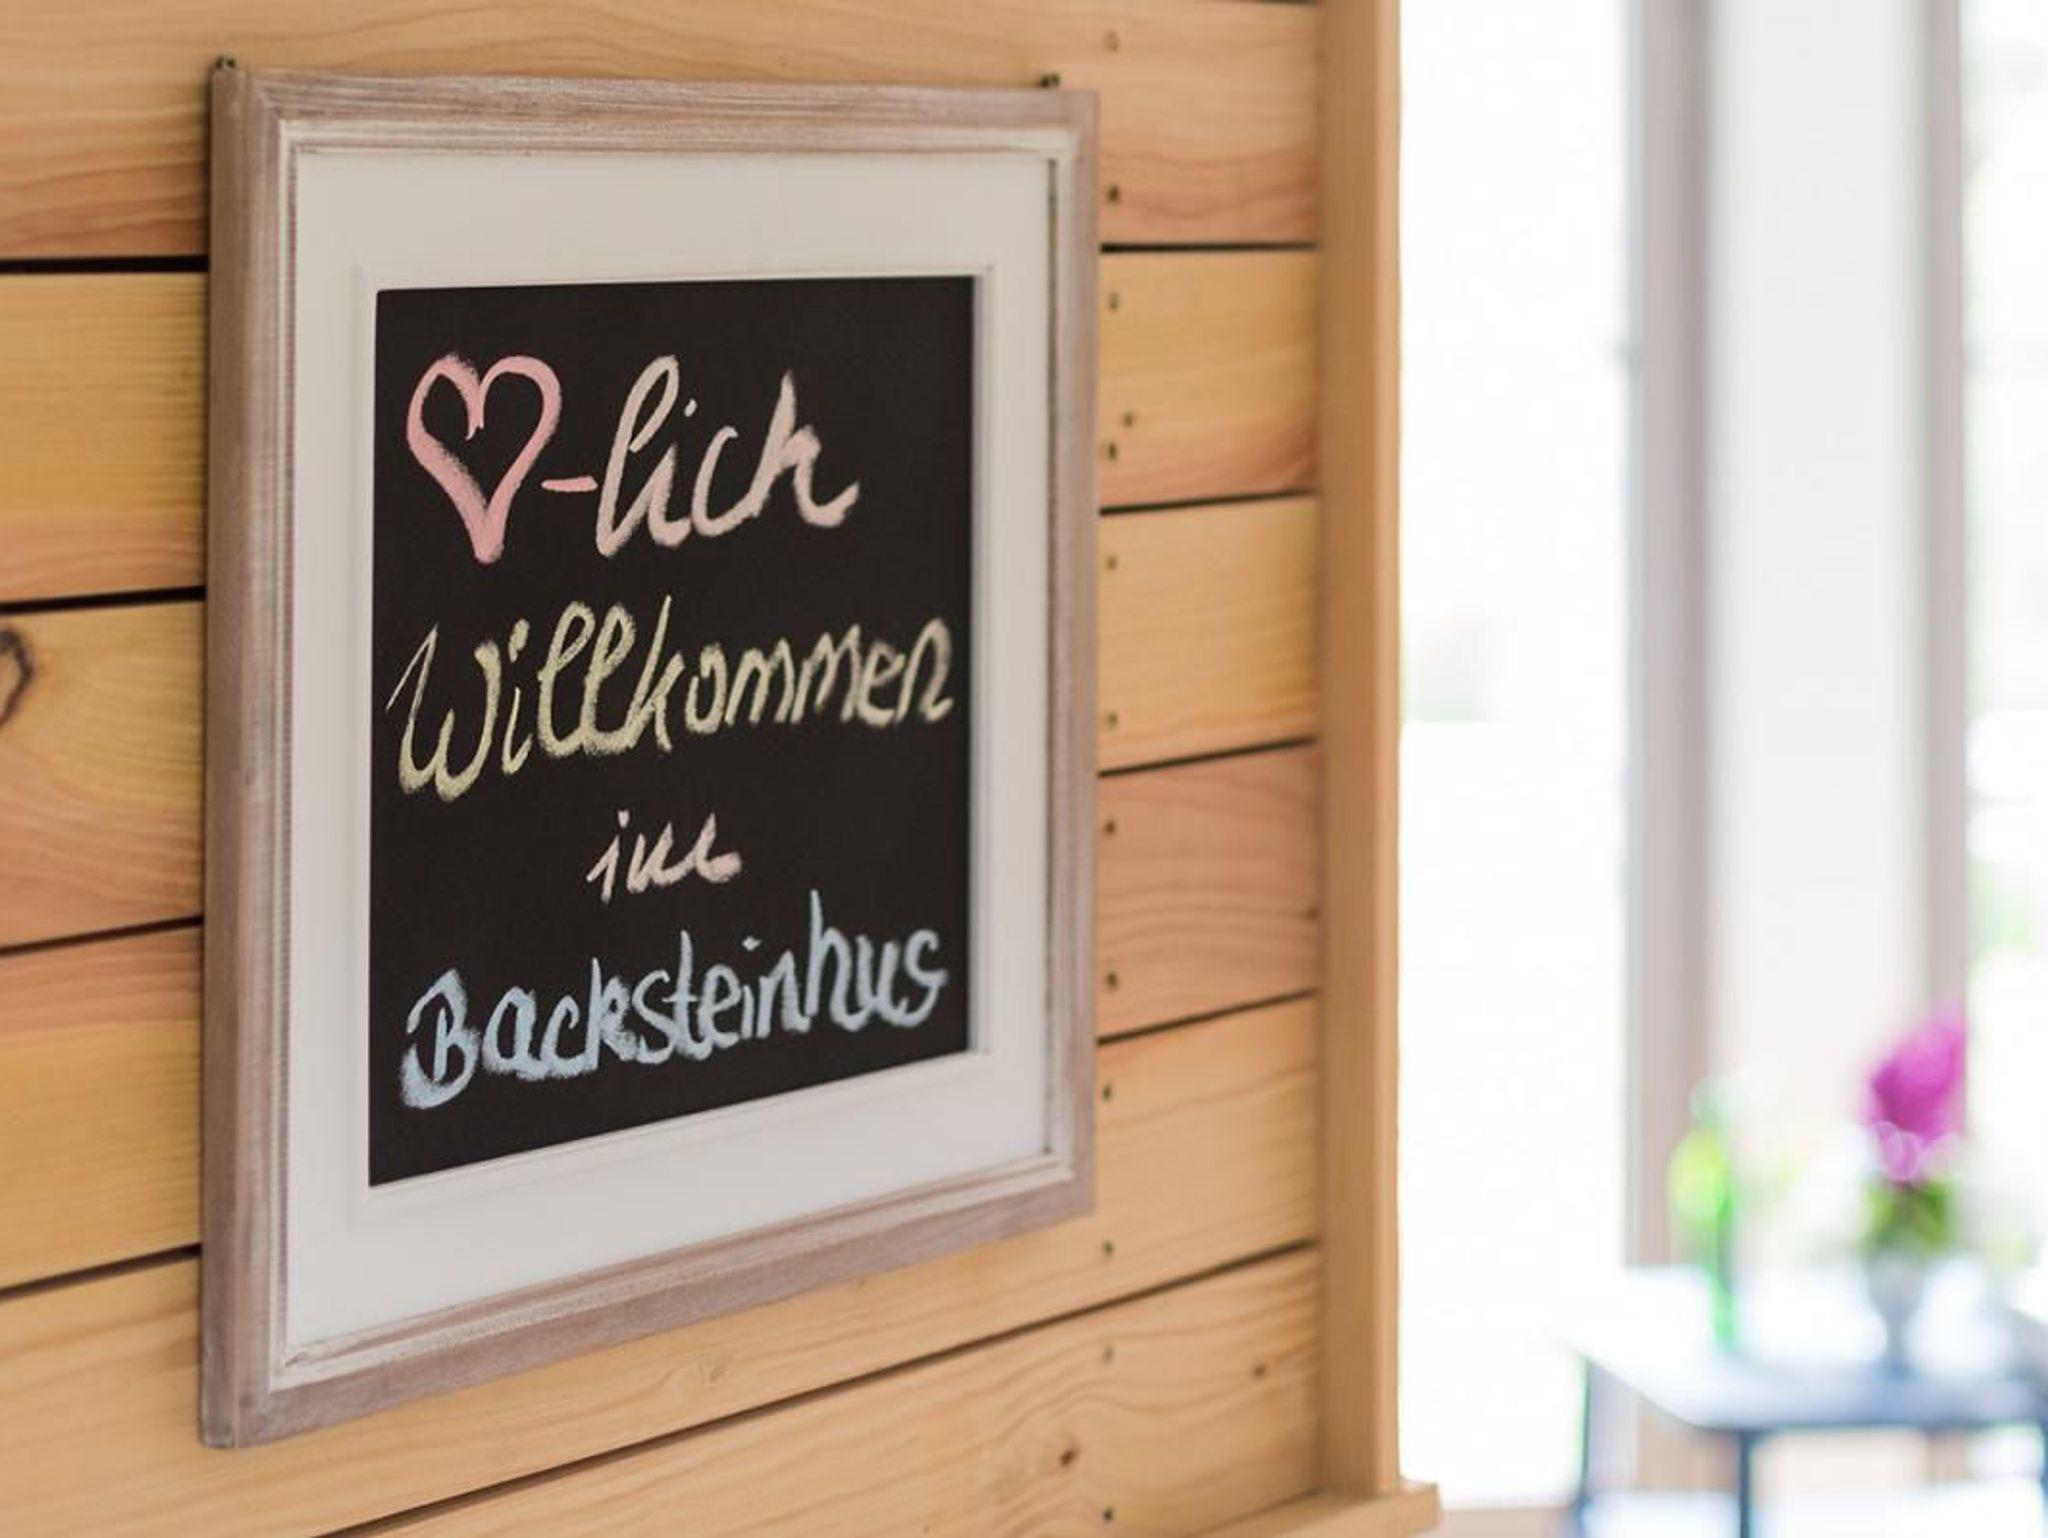 ♡-lich
Willkommen
im
Backsteinhus